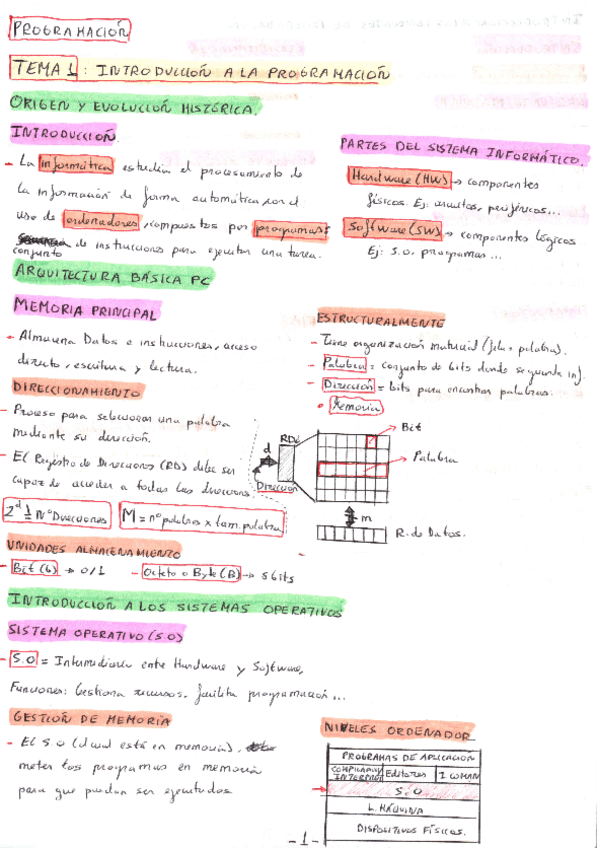 PROGRAMACIÓN
TEMA 1: INTRODUCCIÓN A LA PROGRAMACIÓN
ORIGEN Y EVOLUCIÓN HISTÓRICA.
INTRODUCCIÓN.
- La informática estudia el procesamiento de
la información de forma automática por el
uso de ordenadores, compuestos por programas:
conjunto de instrucciones para ejecutar una tarea.
PARTES DEL SISTEMA INFORMÁTICO.
Hardware (HW) → componentes
físicos. Ej: circuitos, periféricos...
Software (SW) → componentes lógicos
Ej: S.O. programas...
ARQUITECTURA BÁSICA PC
MEMORIA PRINCIPAL
- Almacena Datos e instrucciones, acceso
directo, escritura y lectura.
DIRECCIONAMIENTO
- Proceso para seleccionar una palabra
mediante su dirección.
- El Registro de Direcciones (RD) debe ser
capaz de acceder a todas las direcciones.
Nº Direcciones
M = nº palabras x tam. palabra
ESTRUCTURALMENTE
- Tiene organización matricial (fila, palabra).
- Palabra = conjunto de bits donde se guarda inf.
- Dirección = bits para encontrar palabras.
• Memoria
Bit
RD
d
Palabra
Dirección
m
R. de Datos.
UNIDADES ALMACENAMIENTO
- Bit (b) → 0/1
- Octeto o Byte (B) → 8 bits
INTRODUCCIÓN A LOS SISTEMAS OPERATIVOS
SISTEMA OPERATIVO (S.O)
- S.O = Intermediario entre Hardware y Software,
Funciones: Gestiona recursos, facilita programación...
GESTIÓN DE MEMORIA
- El S.O (el cual está en memoria),
meter los programas en memoria
para que puedan ser ejecutados
NIVELES ORDENADOR
PROGRAMAS DE APLICACIÓN
Editores
S.O
L. MÁQUINA
DISPOSITIVOS FÍSICOS.
-1-